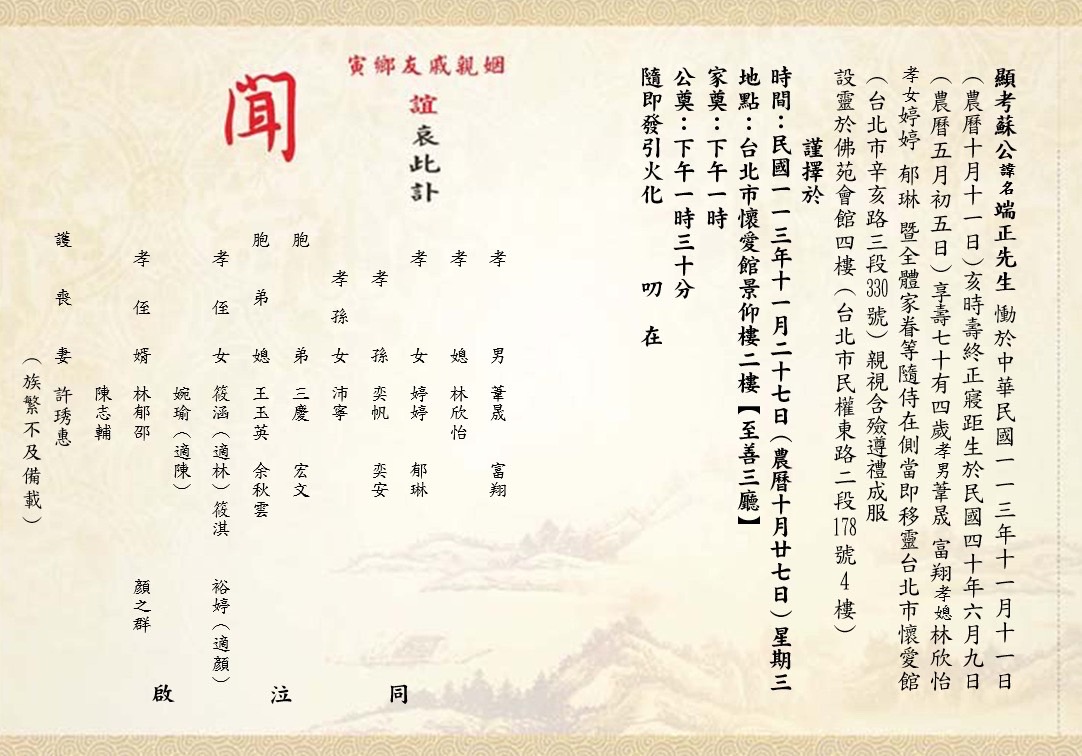 顯考蘇公諱名端正先生 慟於中華民國一一三年十一月十一日
（農曆十月十一日）亥時壽終正寢距生於民國四十年六月九日
（農曆五月初五日）享壽七十有四歲孝男葦晟 富翔孝媳林欣怡
孝女婷婷 郁琳 暨全體家眷等隨侍在側當即移靈台北市懷愛館
（台北市辛亥路三段330號）親視含殮遵禮成服
設靈於佛苑會館四樓（台北市民權東路二段178號4樓）
謹擇於
時間：民國一一三年十一月二十七日（農曆十月廿七日）星期三
地點：台北市懷愛館景仰樓二樓【至善三廳】
家奠：下午一時
公奠：下午一時三十分
隨即發引火化 叨在
姻親戚友鄉寅
誼哀此訃
聞
孝男 葦晟 富翔
孝媳 林欣怡
孝女 婷婷 郁琳
孝孫 奕帆 奕安
孝孫女 沛寧
胞弟 三慶 宏文
胞弟媳 王玉英 余秋雲
孝侄女 筱涵（適林）筱淇 裕婷（適顏）
婉瑜（適陳）
孝侄婿 林郁邵 顏之群
陳志輔
護喪妻 許琇惠
（族繁不及備載）
同泣啟